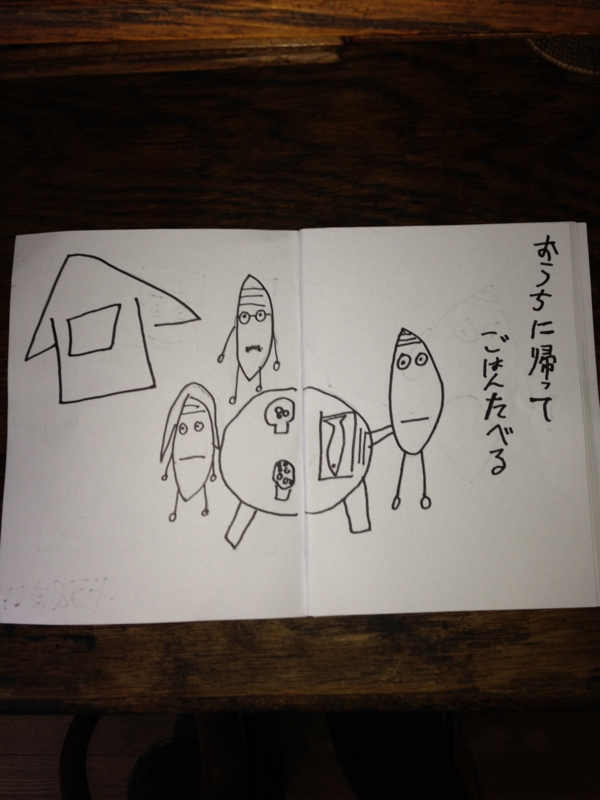 おうちに帰って
ごはんたべる